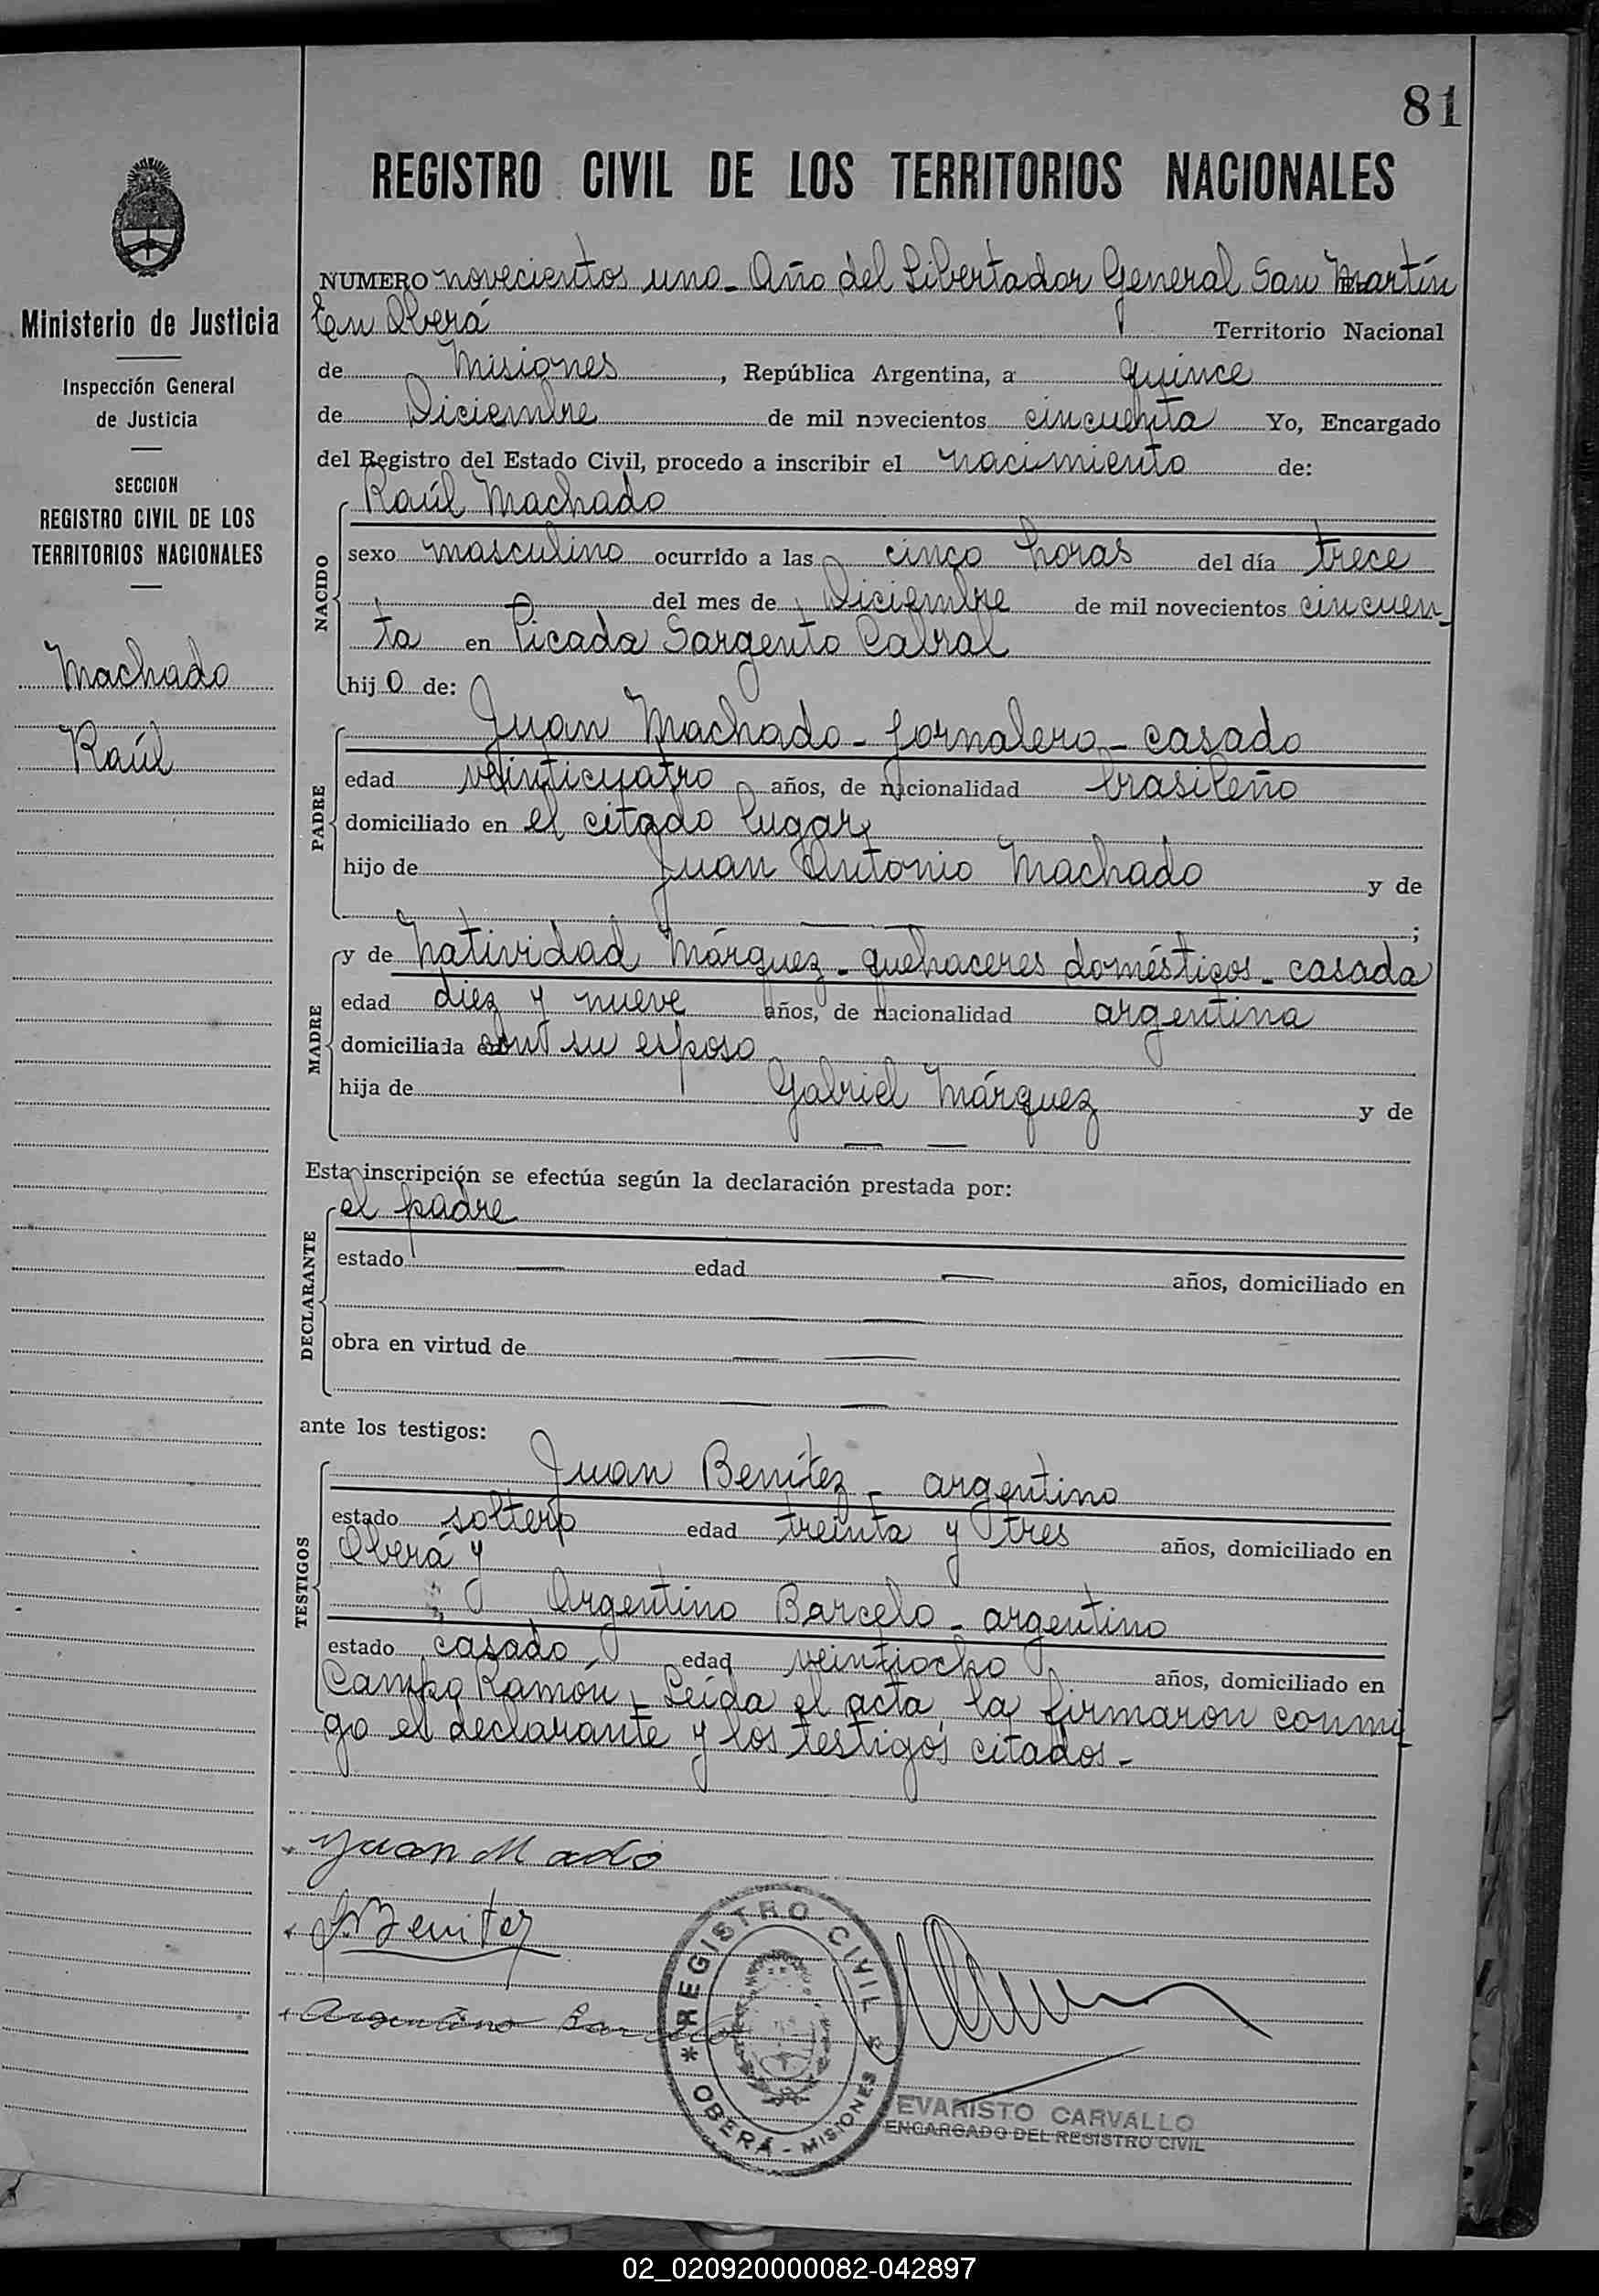 81
REGISTRO CIVIL DE LOS TERRITORIOS NACIONALES
Ministerio de Justicia
Inspección General
de Justicia
SECCION
REGISTRO CIVIL DE LOS
TERRITORIOS NACIONALES
Machado
Raúl
NUMERO novecientos uno - Año del Libertador General San Martín
En Oberá Territorio Nacional
de Misiones, República Argentina, a quince
de Diciembre de mil novecientos cincuenta Yo, Encargado
del Registro del Estado Civil, procedo a inscribir el nacimiento de:
NACIDO
Raúl Machado
sexo masculino ocurrido a las cinco horas del día trece
del mes de Diciembre de mil novecientos cincuen-
ta en Picada Sargento Cabral
hij o de:
PADRE
Juan Machado - jornalero - casado
edad veinticuatro años, de nacionalidad brasileño
domiciliado en el citado lugar
hijo de Juan Antonio Machado y de
— — ;
MADRE
y de Natividad Márquez - quehaceres domésticos - casada
edad diez y nueve años, de nacionalidad argentina
domiciliada con su esposo
hija de Gabriel Márquez y de
— —
Esta inscripción se efectúa según la declaración prestada por:
DECLARANTE
el padre
estado — edad — años, domiciliado en
— —
obra en virtud de — —
— —
ante los testigos:
TESTIGOS
Juan Benítez - argentino
estado soltero edad treinta y tres años, domiciliado en
Oberá y
Argentino Barcelo - argentino
estado casado edad veintiocho años, domiciliado en
Campo Ramón - Leída el acta, la firmaron conmi-
go el declarante y los testigos citados.-
Juan Mado
J. Benitez
Argentino Barcelo
REGISTRO CIVIL
OBERÁ - MISIONES
EVARISTO CARVALLO
ENCARGADO DEL REGISTRO CIVIL
02_020920000082-042897